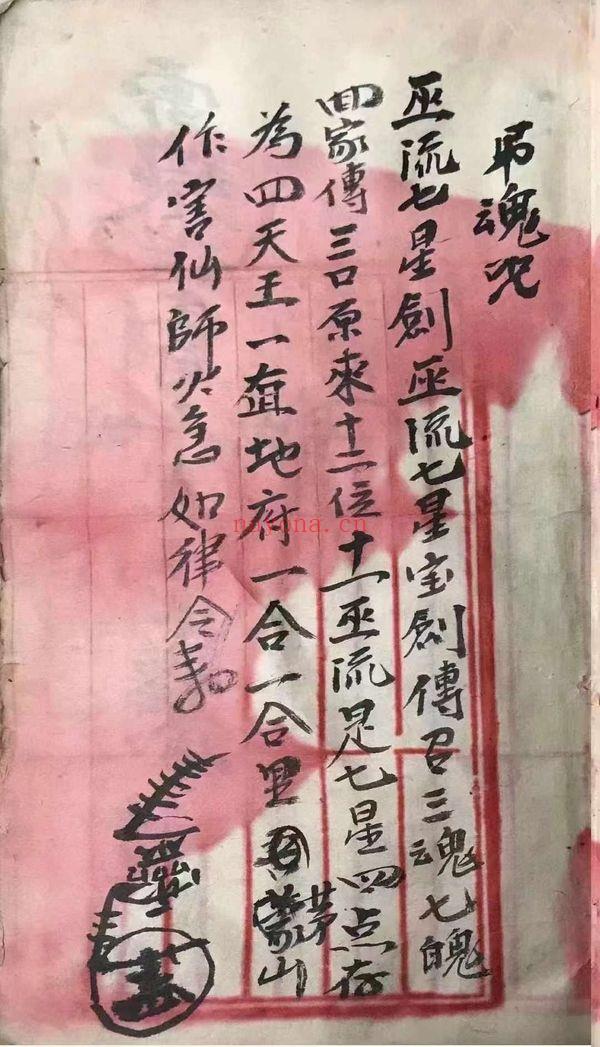 吊魂咒
巫流七星劍巫流七星宝劍傳召三魂七魄
四家傳三口原來十二位十一巫流是七星四点存
為四天王一直地府一合一合里蒙茅山
作害仙師火急如律令
nayona.cn